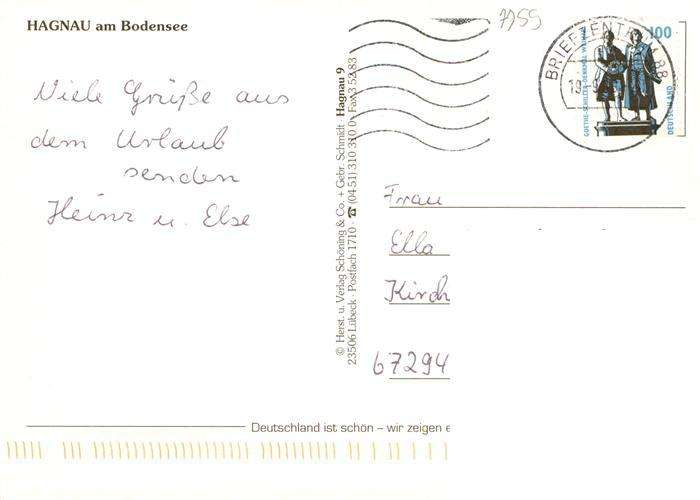 HAGNAU am Bodensee
7755
Viele Grüße aus
dem Urlaub
senden
Heinz u. Else
© Herst. u. Verlag Schöning & Co. + Gebr. Schmidt · Hagnau 9
23506 Lübeck · Postfach 1710 · ☎ (04 51) 310 310 0 · Fax 3 52 83
BRIEFZENTRUM 88
100
GOETHE-SCHILLER-DENKMAL WEIMAR
DEUTSCHLAND
Frau
Ella
Kirch
67294
Deutschland ist schön – wir zeigen e